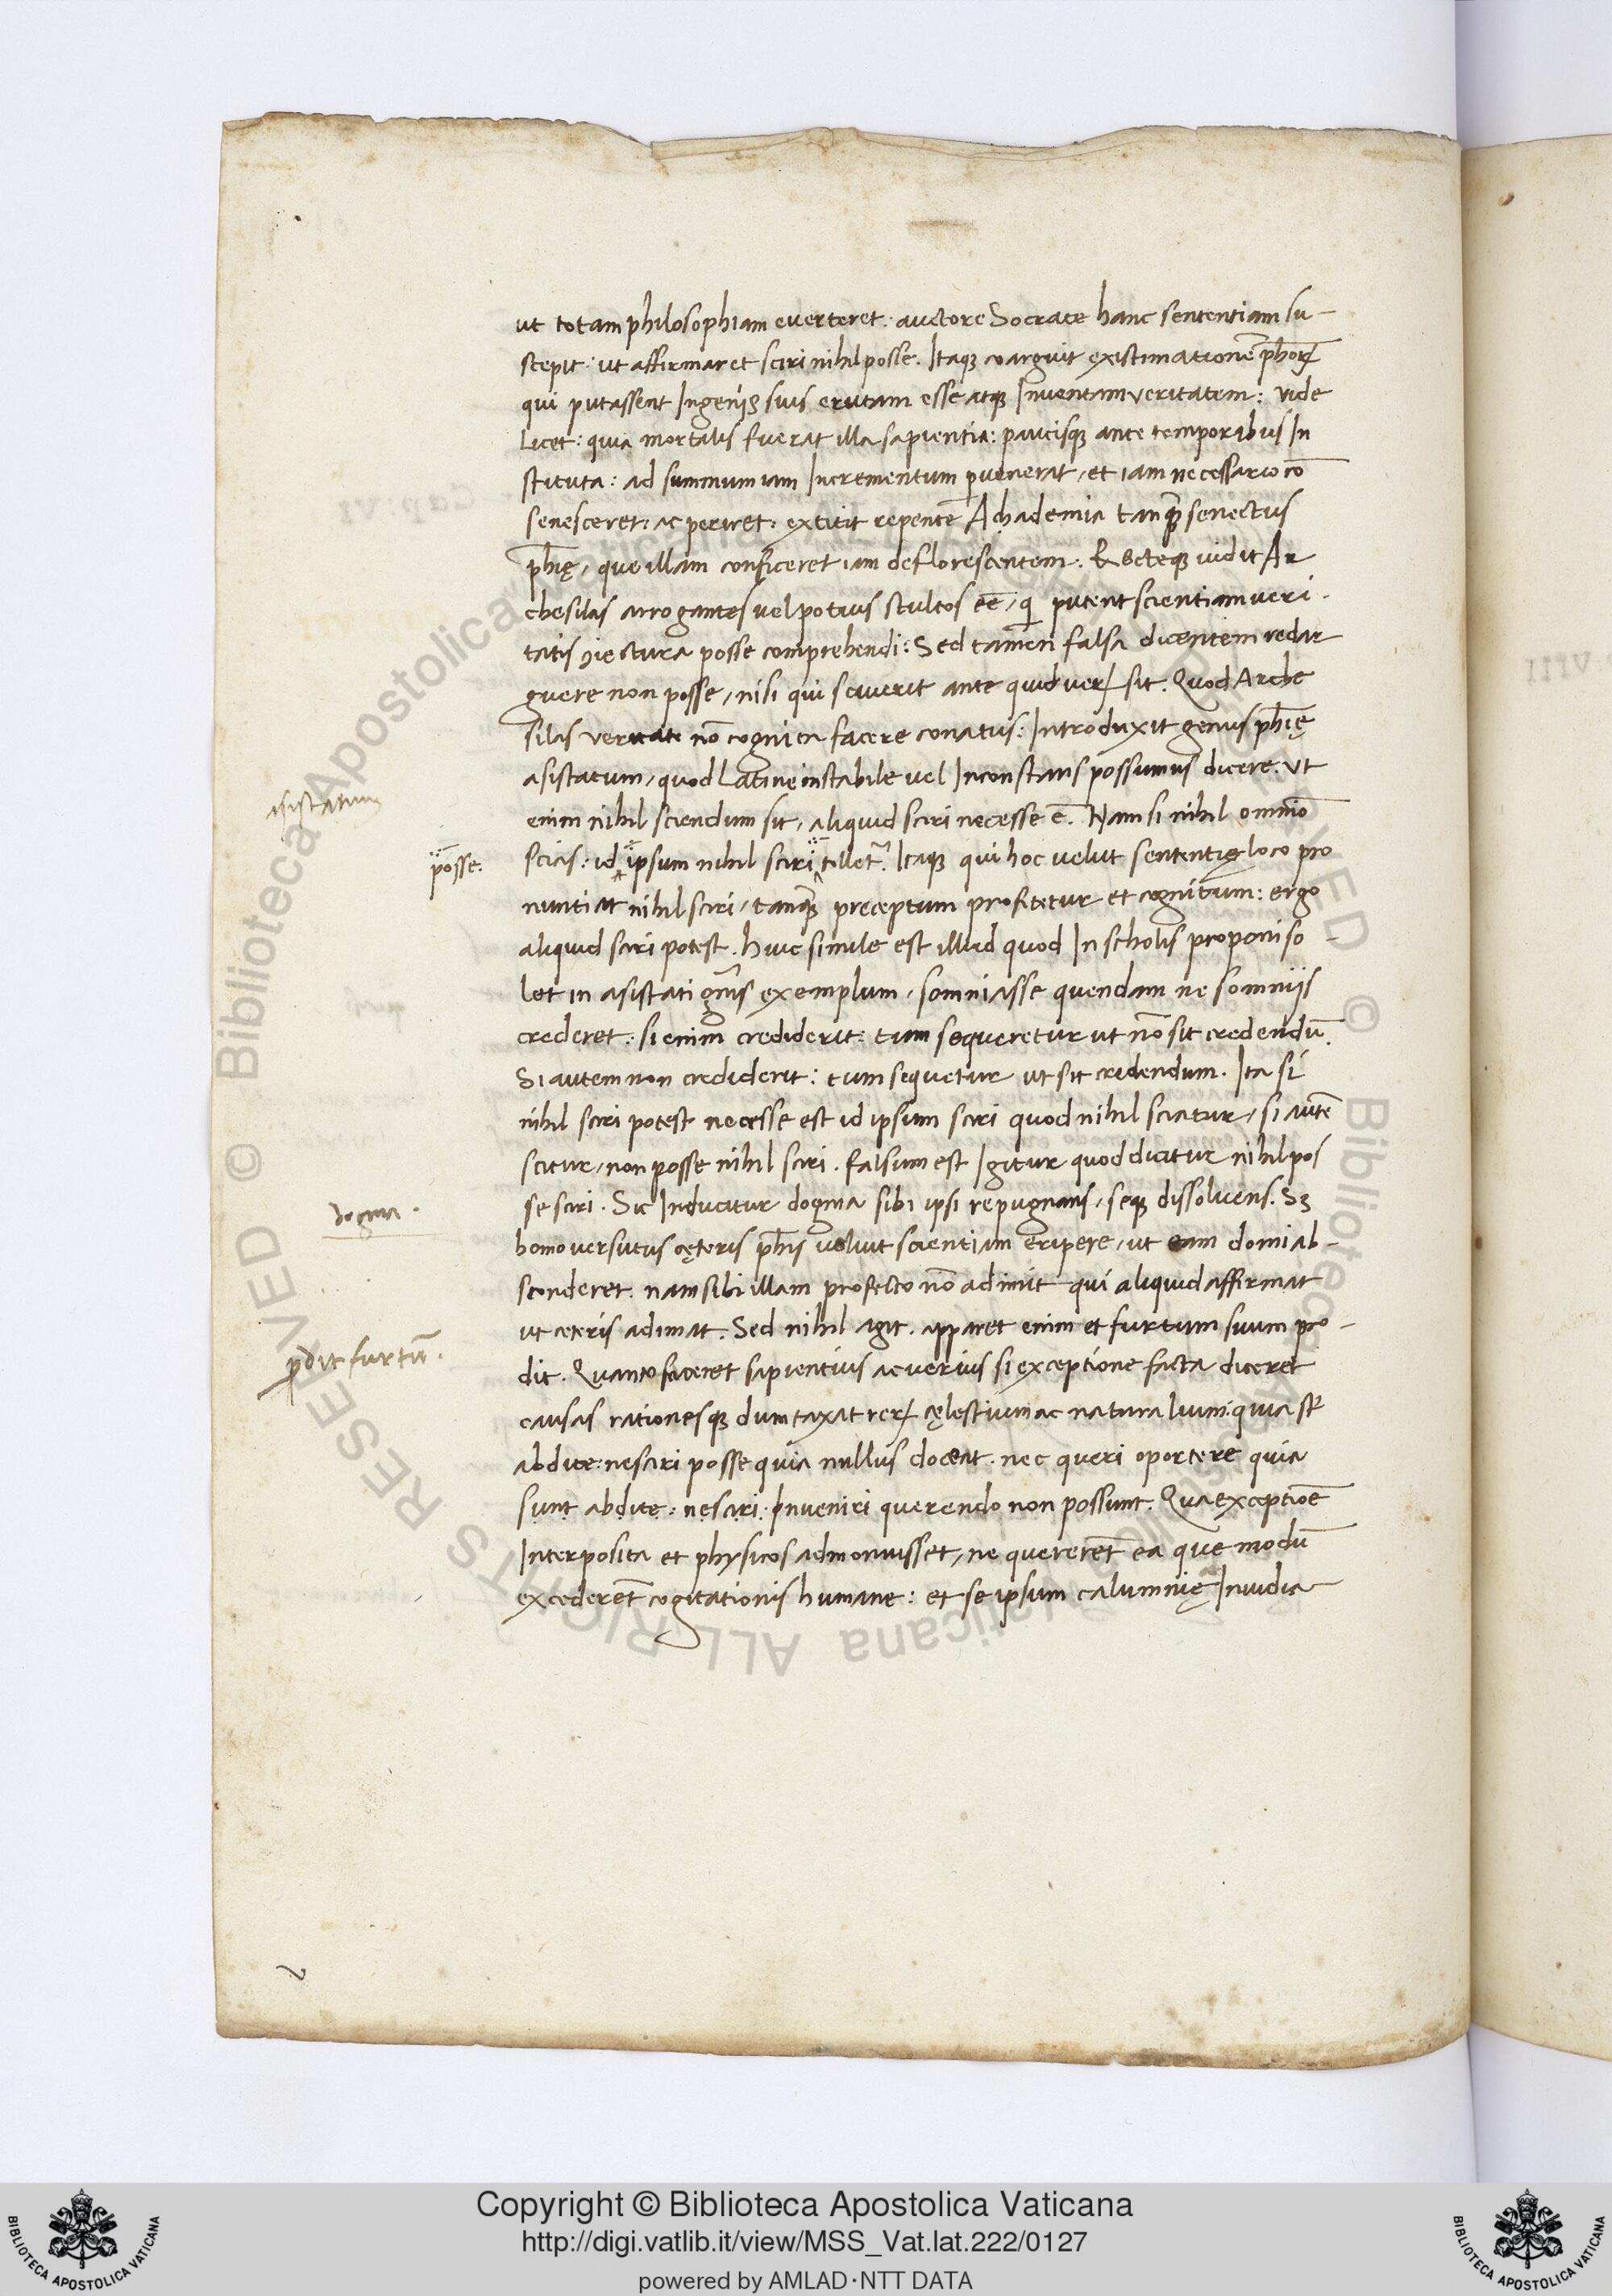 ut totam philosophiam euerteret: auctore Socrate hanc sententiam su-
scepit: ut affirmaret sciri nihil posse. Itaqꝫ coarguit existimationē ph̄orꝝ
qui putassent Ingenijs suis erutam esse atqꝫ Inuentam ueritatem: uide
licet: quia mortalis fuerat illa sapientia: paucisqꝫ ante temporibus In
stituta: ad summum iam Incrementum ꝑuenerat, et iam necessario cō
senesceret: ac periret: extitit repente Achademia tanqꝫ senectus
ph̄ię, que illam conficeret iam deflorescentem. Recteqꝫ uidit Ar
chesilas arrogantes uel potius stultos eē, qi putent scientiam ueri-
tatis ꝯiectura posse comprehendi: Sed tamen falsa dicentem redar
guere non posse, nisi qui sciuerit ante quid uerꝝ sit. Quod Arche
silas ueritate nō cognita facere conatus: Introduxit genus ph̄ię
asistatum, quod Latine instabile uel Inconstans possumus dicere. ut
enim nihil sciendum sit, aliquid sciri necesse ē. Nam si nihil omnīo
asistatum
scias: id ipsum nihil sciri tollet̃. Itaqꝫ qui hoc uelut sententię loco pro
posse.
nuntiat nihil sciri, tanqꝫ preceptum profitetur et cognitum: ergo
aliquid sciri potest. huic simile est illud quod In scholis proponi so-
let in asistati gn̄is exemplum, somniasse quendam ne somnijs
crederet: si enim crediderit: tum sequeretur ut nō sit credendū.
Si autem non crediderit: tum sequetur ut sit credendum. Ita si
nihil sciri potest necesse est id ipsum sciri quod nihil sciatur, si autē
scitur, non posse nihil sciri. falsum est Igitur quod dicitur nihil pos
se sciri. Sic Inducitur dogma sibi ipsi repugnans, seqꝫ dissoluens. Sꝫ
dogma.
homo uersutus cęteris ph̄is uoluit scientiam eripere, ut eam domi ab-
sconderet. nam sibi illam profecto nō adimit qui aliquid affirmat
ut ceteris adimat. Sed nihil agit. apparet enim et furtum suum pro-
ꝓdit furtū.
dit. Quanto faceret sapientius ac uerius si exceptione facta diceret
causas rationesqꝫ dumtaxat rerꝝ cęlestium ac naturalium: quia st̄
abdite: nesciri posse quia nullus doceat. nec queri oportere quia
sunt abdite: nesciri: Inueniri querendo non possunt. Qua exceptiōe
Interposita et physicos admonuisset, ne quererēt ea que modū
excederēt cogitationis humane: et se ipsum calumnię Inuidia
Copyright © Biblioteca Apostolica Vaticana
http://digi.vatlib.it/view/MSS_Vat.lat.222/0127
powered by AMLAD·NTT DATA
BIBLIOTECA APOSTOLICA VATICANA
BIBLIOTECA APOSTOLICA VATICANA
© Biblioteca Apostolica Vaticana ALL RIGHTS RESERVED